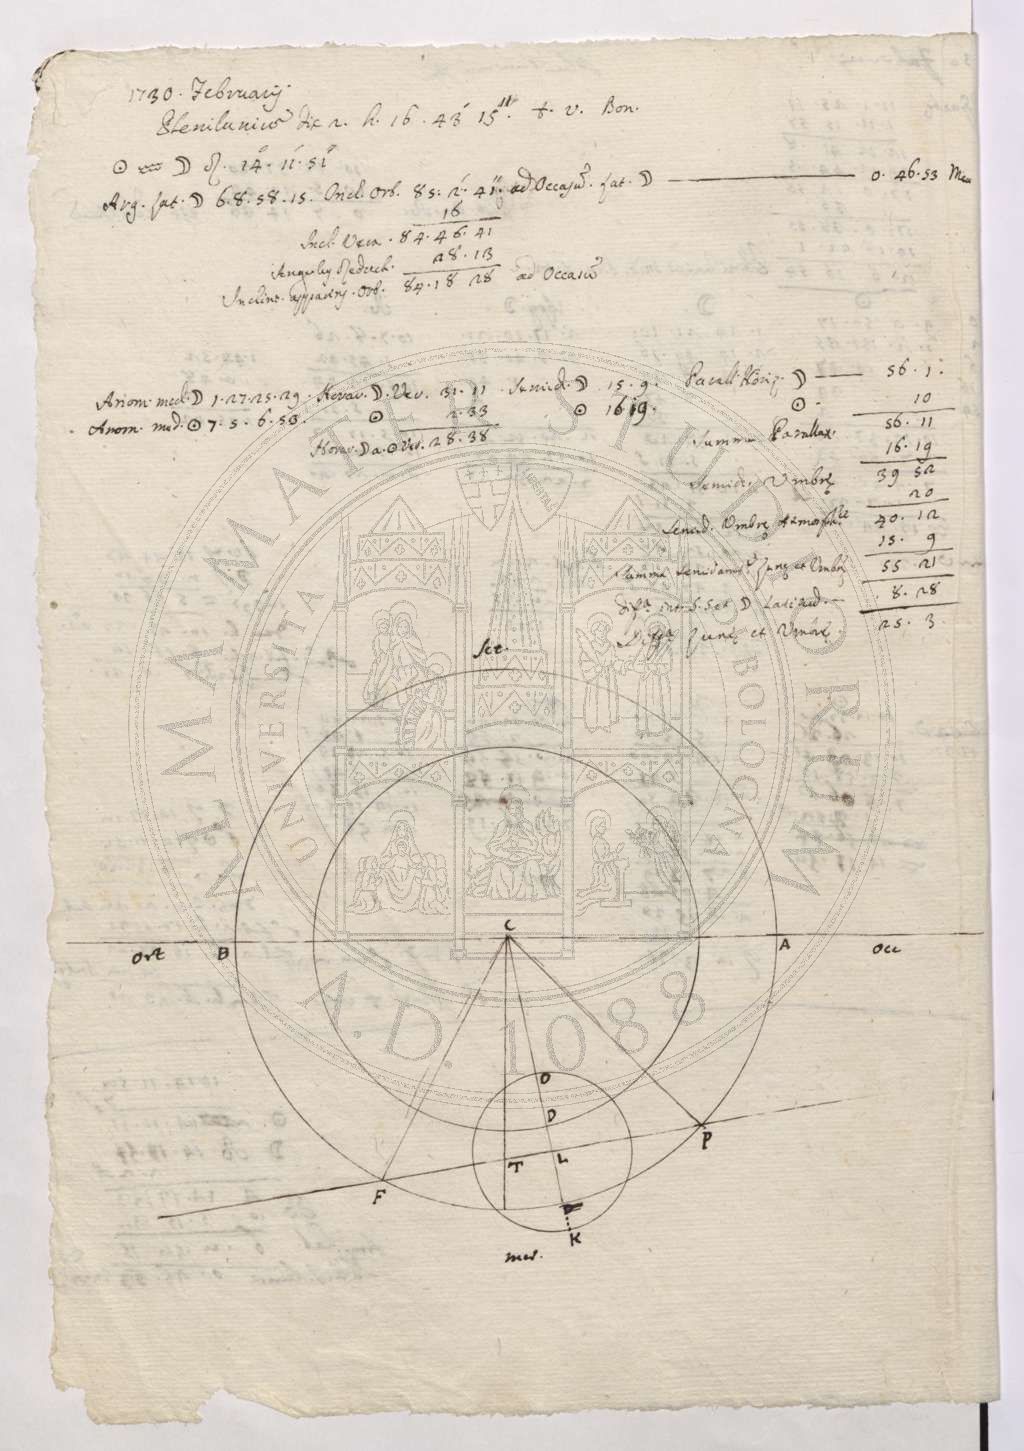 1730. Februarij.
Plenilunium die 2. h. 16. 43' 15". t. v. Bon.
☉ ♒ ☽ ♌. 14. 11. 51
Arg. lat. ☽ 6. 8. 58. 15. Incl. Orb. 85. 2. 41. ad Occasum. Lat. ☽ 0. 46. 53 Mer
16
Incl. Vera. 84. 46. 41
Angulus Reduct. 28. 13
Inclina. apparens. Orb. 84. 18 28 ad Occasum
Anom. med. ☽ 1. 27. 25. 29. Horar. ☽. Ver. 31. 11 Semid. ☽ 15. 9. Parall. Horiz. ☽ 56. 1.
Anom. med. ☉ 7. 5. 6. 50. ☉ 2. 33 ☉ 16 19. ☉. 10
Horar. ☽ a. ☉ Ver. 28. 38 Summa Parallax. 56. 11
16. 19
Semid. Umbrę 39 52
20
Semid. Umbrę Atmosph. 40. 12
15. 9
Summa semidiam. Lunę et Umbrę 55 21
Diffa. int. S. S. et ☽ Latitud. 8. 28
Diffa. Lunę et Umbrę. 25. 3.
Set.
C
Ort B A Occ
O
D
P
T L
F
K
mer.
ALMA MATER STUDIORUM
UNIVERSITÀ DI BOLOGNA
A.D. 1088